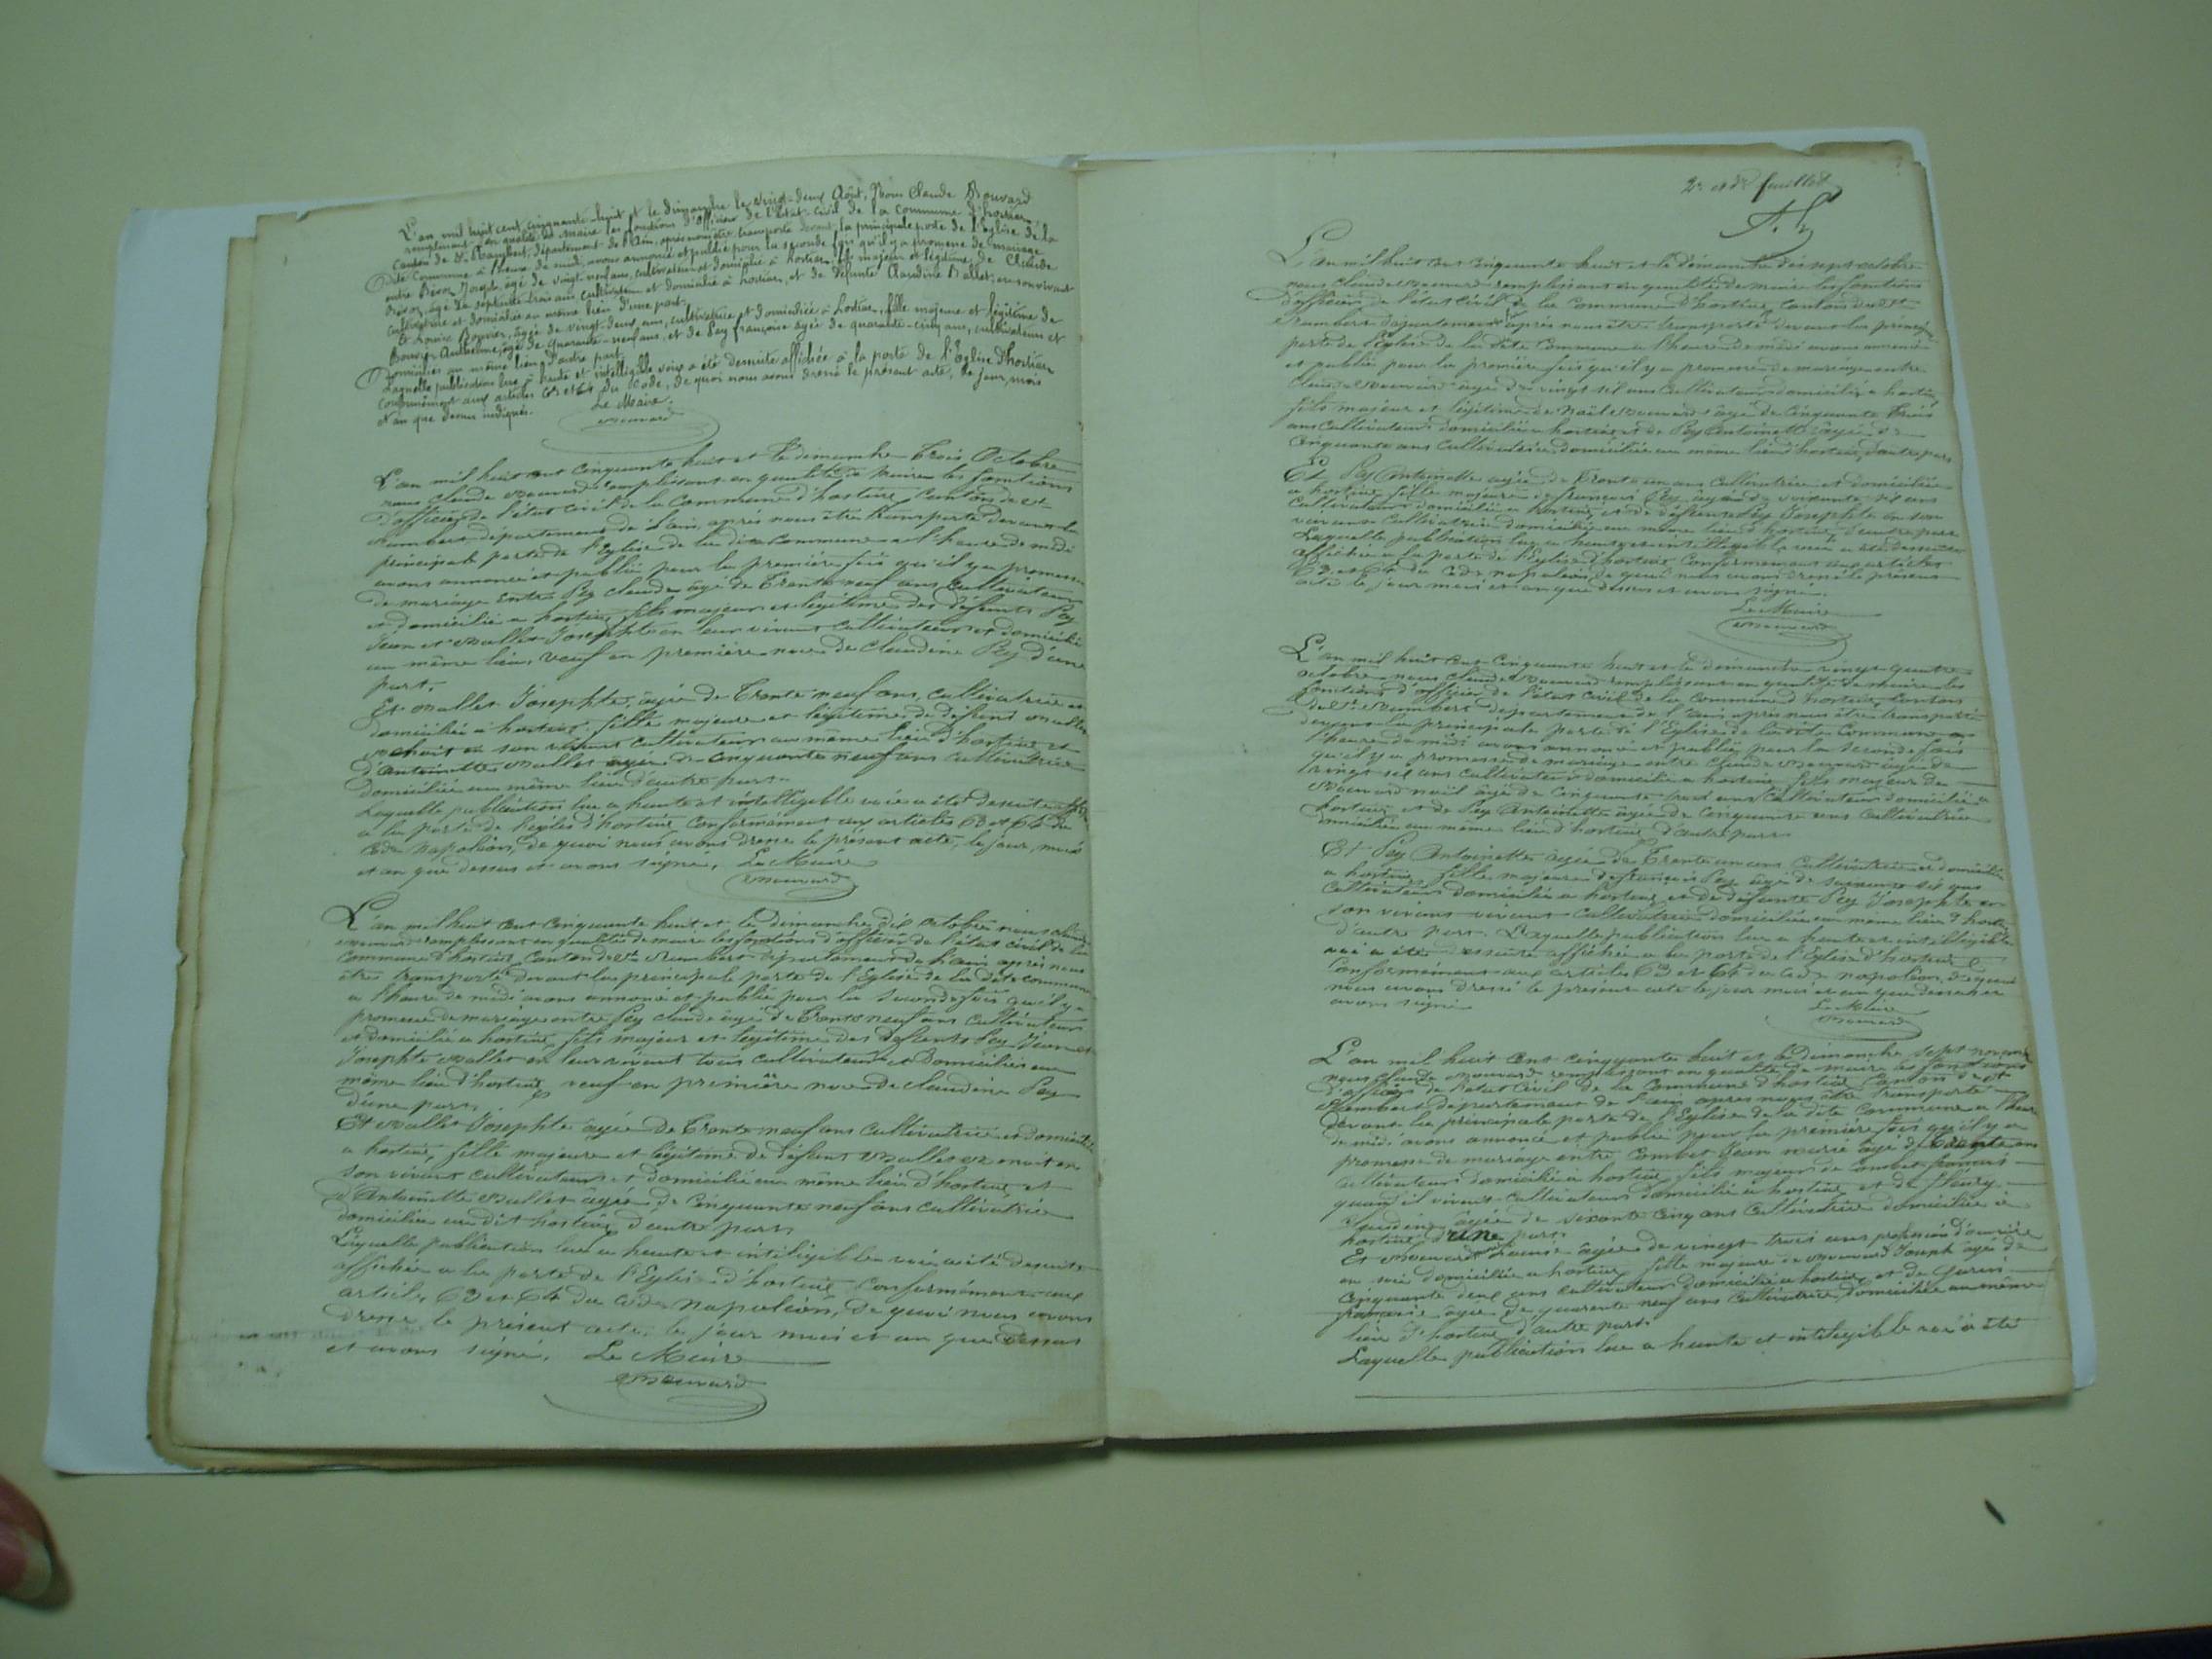 L'an mil huit cent cinquante-huit et le dimanche le vingt-deux Août, Nous Claude Bouvard
remplissant en qualité de Maire les fonctions d'officier de l'état-civil de la commune d'hostiaz
Canton de St Rambert, département de l'Ain, après nous être transporté devant la principale porte de l'Eglise de la
dite Commune à l'heure de midi, avons annoncé et publié pour la seconde fois qu'il y a promesse de mariage
entre Joseph, agé de vingt-neuf ans, cultivateur et domicilié à hostiaz, fils majeur et légitime de Claude
agé de septante-trois ans, cultivateur et domicilié à hostiaz, et de défunte Claudine Ballet, en son vivant
cultivatrice et domiciliée au même lieu d'une part.
Et Bouvier, agée de vingt-deux ans, cultivatrice et domiciliée à hostiaz, fille majeure et légitime de
Bouvier Anthelme, agé de quarante-neuf ans, et de Pey françoise agée de quarante-cinq ans, cultivateurs et
domiciliés au même lieu d'autre part.
Laquelle publication lue à haute et intelligible voix a été de suite affichée à la porte de l'Eglise d'hostiaz
conformément aux articles 63 et 64 du Code, de quoi nous avons dressé le présent acte, les jour, mois
et an que dessus indiqués.
Le Maire.
Bouvard
L'an mil huit cent cinquante huit et le dimanche trois Octobre
nous claude Bouvard remplissant en qualité de Maire les fonctions
d'officier de l'état civil de la Commune d'hostiaz Canton de St
Rambert département de l'ain, après nous être transporté devant la
principale porte de l'Eglise de la dite Commune a l'heure de midi
avons annoncé et publié pour la première fois qu'il y a promesse
de mariage entre Pey claude âgé de trente neuf ans cultivateur
et domicilié a hostiaz fils majeur et légitime des défunts Pey
Jean et Ballet Josephte en leur vivant cultivateurs et domiciliés
au même lieu, veuf en première noce de Claudine Pey d'une
part.
Et Ballet Josephte, âgée de trente neuf ans, cultivatrice et
domiciliée a hostiaz fille majeure et légitime de défunt Ballet
Benoit en son vivant cultivateur au même lieu d'hostiaz et
d'antoinette Ballet agée de cinquante neuf ans cultivatrice
domiciliée au même lieu d'autre part.
Laquelle publication lue a haute et intelligible voie a été de suite affichée
a la porte de l'église d'hostiaz conformément aux articles 63 et 64 du
Code Napoléon, de quoi nous avons dressé le présent acte, le jour, mois
et an que dessus et avons signé. Le Maire
Bouvard
L'an mil huit cent cinquante huit et le dimanche dix octobre nous claude
Bouvard remplissant en qualité de maire les fonctions d'officier de l'état civil de la
Commune d'hostiaz Canton de St Rambert département de l'ain après nous
être transporté devant la principale porte de l'Eglise de la dite commune
a l'heure de midi avons annoncé et publié pour la seconde fois qu'il y a
promesse de mariage entre Pey claude âgé de trente neuf ans cultivateur
et domicilié a hostiaz fils majeur et légitime des défunts Pey Jean et
Josephte Ballet en leur vivant tous cultivateurs et domiciliés au
même lieu d'hostiaz veuf en première noce de claudine Pey
d'une part.
Et Ballet Josephte âgée de trente neuf ans cultivatrice et domiciliée
a hostiaz, fille majeure et légitime de défunt Ballet Benoit en
son vivant cultivateur et domicilié au même lieu d'hostiaz et
d'Antoinette Ballet âgée de cinquante neuf ans cultivatrice
domiciliée au dit hostiaz d'autre part.
Laquelle publication lue a haute et intelligible voie a été de suite
affichée a la porte de l'Eglise d'hostiaz conformément aux
articles 63 et 64 du code Napoléon, de quoi nous avons
dressé le présent acte, le jour mois et an que dessus
et avons signé. Le Maire
Bouvard
2e et dr feuillet
L'an mil huit cent cinquante huit et le dimanche dix sept octobre
nous claude Bouvard remplissant en qualité de maire les fonctions
d'officier de l'état civil de la Commune d'hostiaz, Canton de St
Rambert département après nous être transporté devant la principale
porte de l'Eglise de la dite Commune a l'heure de midi avons annoncé
et publié pour la première fois qu'il y a promesse de mariage entre
claude Bouvard âgé de vingt six ans cultivateur domicilié a hostiaz
fils majeur et légitime de Noël Bouvard âgé de cinquante trois
ans cultivateur domicilié a hostiaz et de Pey Antoinette âgée de
cinquante ans cultivatrice domiciliée au même lieu d'hostiaz, d'autre part
Et Pey Antoinette agée de trente un ans cultivatrice et domiciliée
a hostiaz fille majeure de françois Pey âgé de soixante six ans
cultivateur domicilié a hostiaz et de défunte Pey Josephte en son
vivant cultivatrice domiciliée au même lieu d'hostiaz d'autre part
Laquelle publication lue a haute et intelligible voie a été de suite
affichée a la porte de l'Eglise d'hostiaz conformément aux articles
63 et 64 du code napoléon, de quoi nous avons dressé le présent
acte le jour mois et an que dessus et avons signé.
Le Maire
Bouvard
L'an mil huit cent cinquante huit et le dimanche vingt quatre
octobre nous claude Bouvard remplissant en qualité de maire les
fonctions d'officier de l'état civil de la commune d'hostiaz, Canton
de St Rambert département de l'ain après nous être transporté
devant la principale porte de l'Eglise de la dite Commune a
l'heure de midi avons annoncé et publié pour la seconde fois
qu'il y a promesse de mariage entre claude Bouvard âgé de
vingt six ans cultivateur domicilié a hostiaz fils majeur de
Bouvard noël âgé de cinquante trois ans cultivateur domicilié a
hostiaz et de Pey Antoinette âgée de cinquante ans cultivatrice
domiciliée au même lieu d'hostiaz d'autre part
Et Pey Antoinette âgée de trente un ans cultivatrice et domiciliée
a hostiaz fille majeure de françois Pey âgé de soixante six ans
cultivateur domicilié a hostiaz et de défunte Pey Josephte en
son vivant vivant cultivatrice domiciliée au même lieu d'hostiaz
d'autre part. Laquelle publication lue a haute et intelligible
voie a été de suite affichée a la porte de l'Eglise d'hostiaz
conformément aux articles 63 et 64 du code napoléon, de quoi
nous avons dressé le présent acte le jour mois et an que dessus et
avons signé
Le Maire
Bouvard
L'an mil huit cent cinquante huit et le dimanche sept novembre
nous claude Bouvard remplissant en qualité de maire les fonctions
d'officier de l'état civil de la commune d'hostiaz Canton de St
Rambert département de l'ain après nous être transporté
devant la principale porte de l'Eglise de la dite commune a l'heure
de midi avons annoncé et publié pour la première fois qu'il y a
promesse de mariage entre Combet Jean marie âgé de trente ans
cultivateur domicilié a hostiaz fils majeur de Combet françois
quand il vivait cultivateur domicilié a hostiaz et de fleury
claudine âgée de soixante cinq ans cultivatrice domiciliée a
hostiaz d'une part.
Et Bouvard âgée de vingt trois ans profession d'ouvrière
en soie domiciliée a hostiaz fille majeure de Bouvard Joseph âgé de
cinquante deux ans cultivateur domicilié a hostiaz et de
âgée de quarante neuf ans cultivatrice domiciliée au même
lieu d'hostiaz d'autre part.
Laquelle publication lue a haute et intelligible voie a été